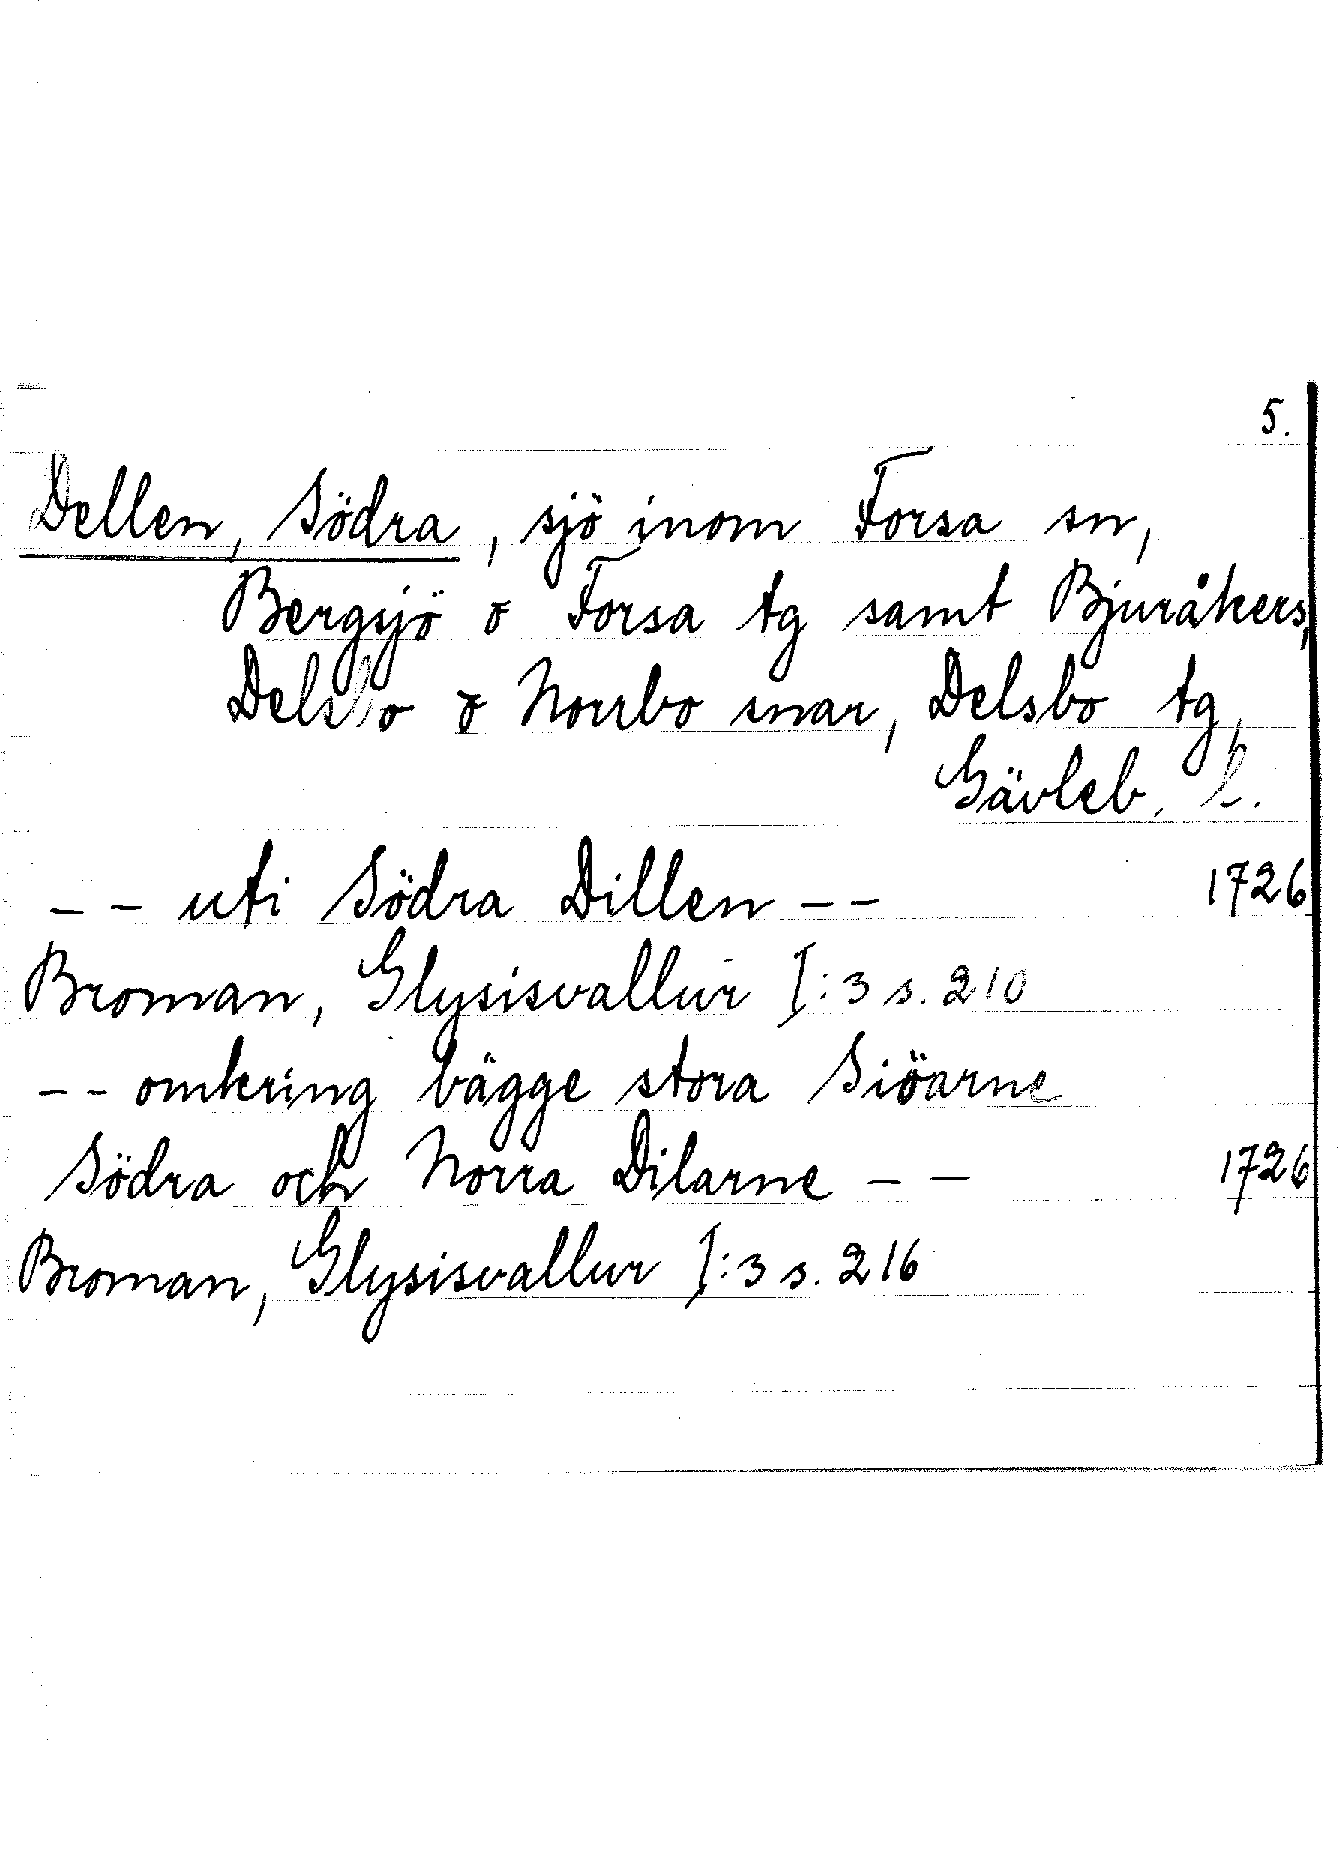 5.
Dellen, Södra, sjö inom Forsa sn,
Bergsjö o Forsa tg samt Bjuråkers,
Delsbo o Norrbo snar, Delsbo tg,
Gävleb. l.
-- uti Södra Dillen -- 1726
Broman, Glysisvallur I:3 s. 210
-- omkring bägge stora Siöarne
Södra och Norra Dilarne -- 1726
Broman, Glysisvallur I:3 s. 216